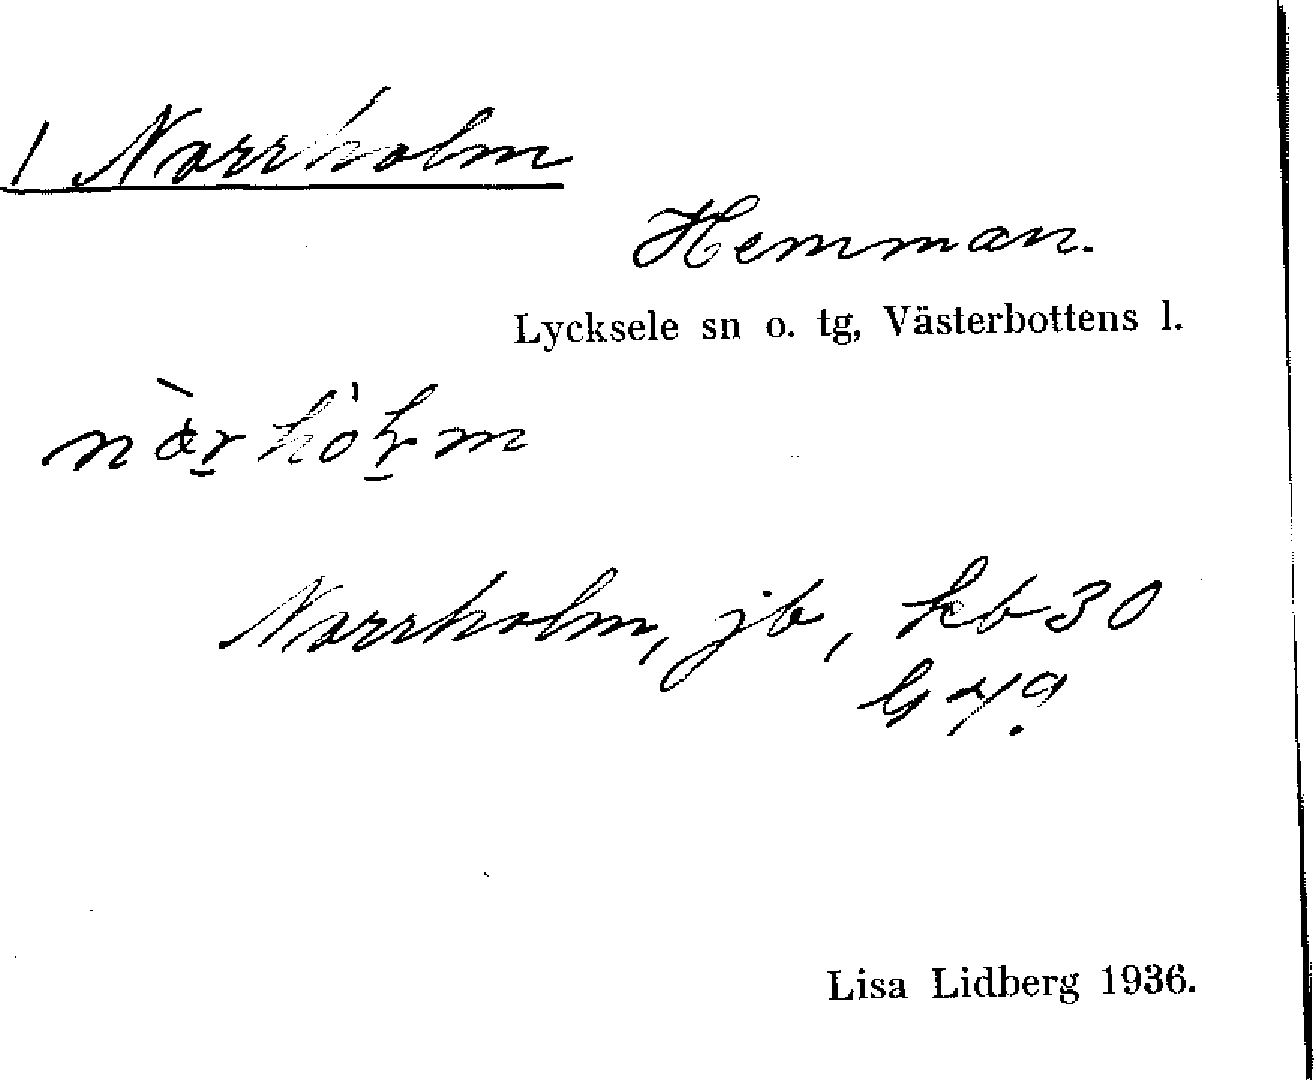 1 Norrholm
Hemman.
Lycksele sn o. tg, Västerbottens l.
Norrholm, jb, kb 30
Lisa Lidberg 1936.